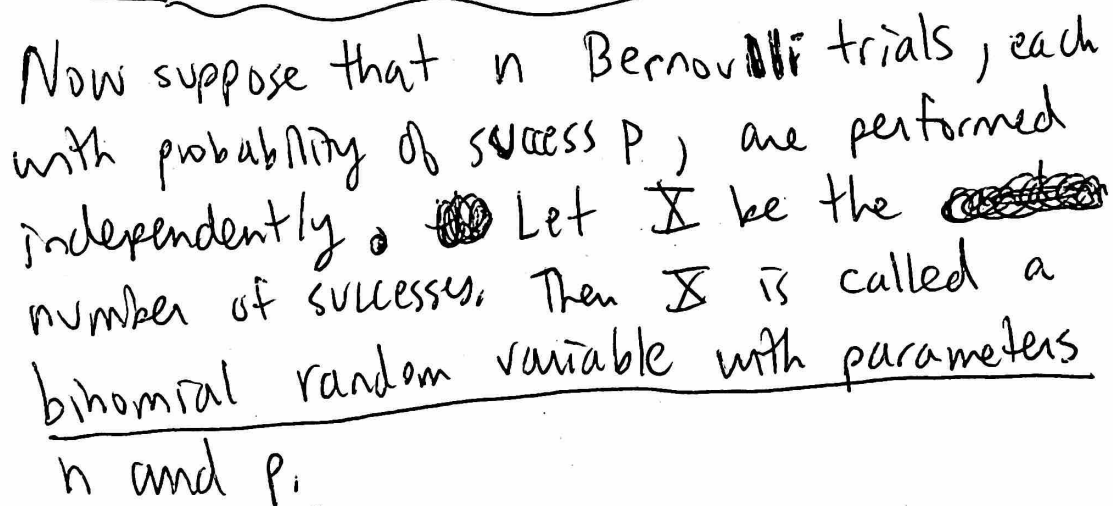 Now suppose that n Bernoulli trials, each
with probability of success p, are performed
independently. Let X be the
number of successes. Then X is called a
binomial random variable with parameters
n and p.